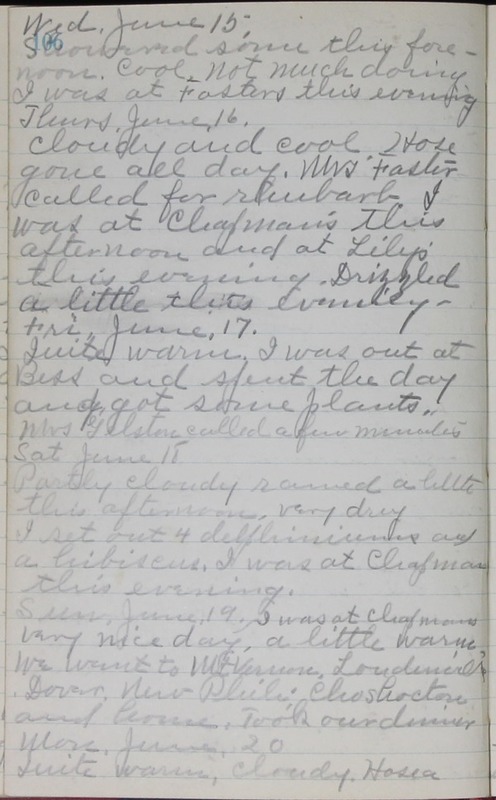 Wed. June 15.
106
Showered some this fore-
noon. Cool. Not much doing
I was at Fosters this evening
Thurs, June, 16.
Cloudy and cool Hose
gone all day. Mrs Foster
called for rhubarb I
was at Chapman's this
afternoon and at Lily's
this evening. Drizzled
a little this evening-
Fri, June, 17.
Quite warm. I was out at
Bess and spent the day
and got some plants.
Mrs Gelston called a few minutes
Sat June 18
Partly cloudy rained a little
this afternoon, very dry
I set out 4 delphiniums and
a hibiscus. I was at Chapman
this evening.
Sun, June, 19. I was at Chapmans
very nice day, a little warm,
We went to Mt Vernon, Loudenville,
Dover, New Phila, Choshocton
and home. Took our dinner
Mon, June, 20
Quite warm, cloudy. Hosea